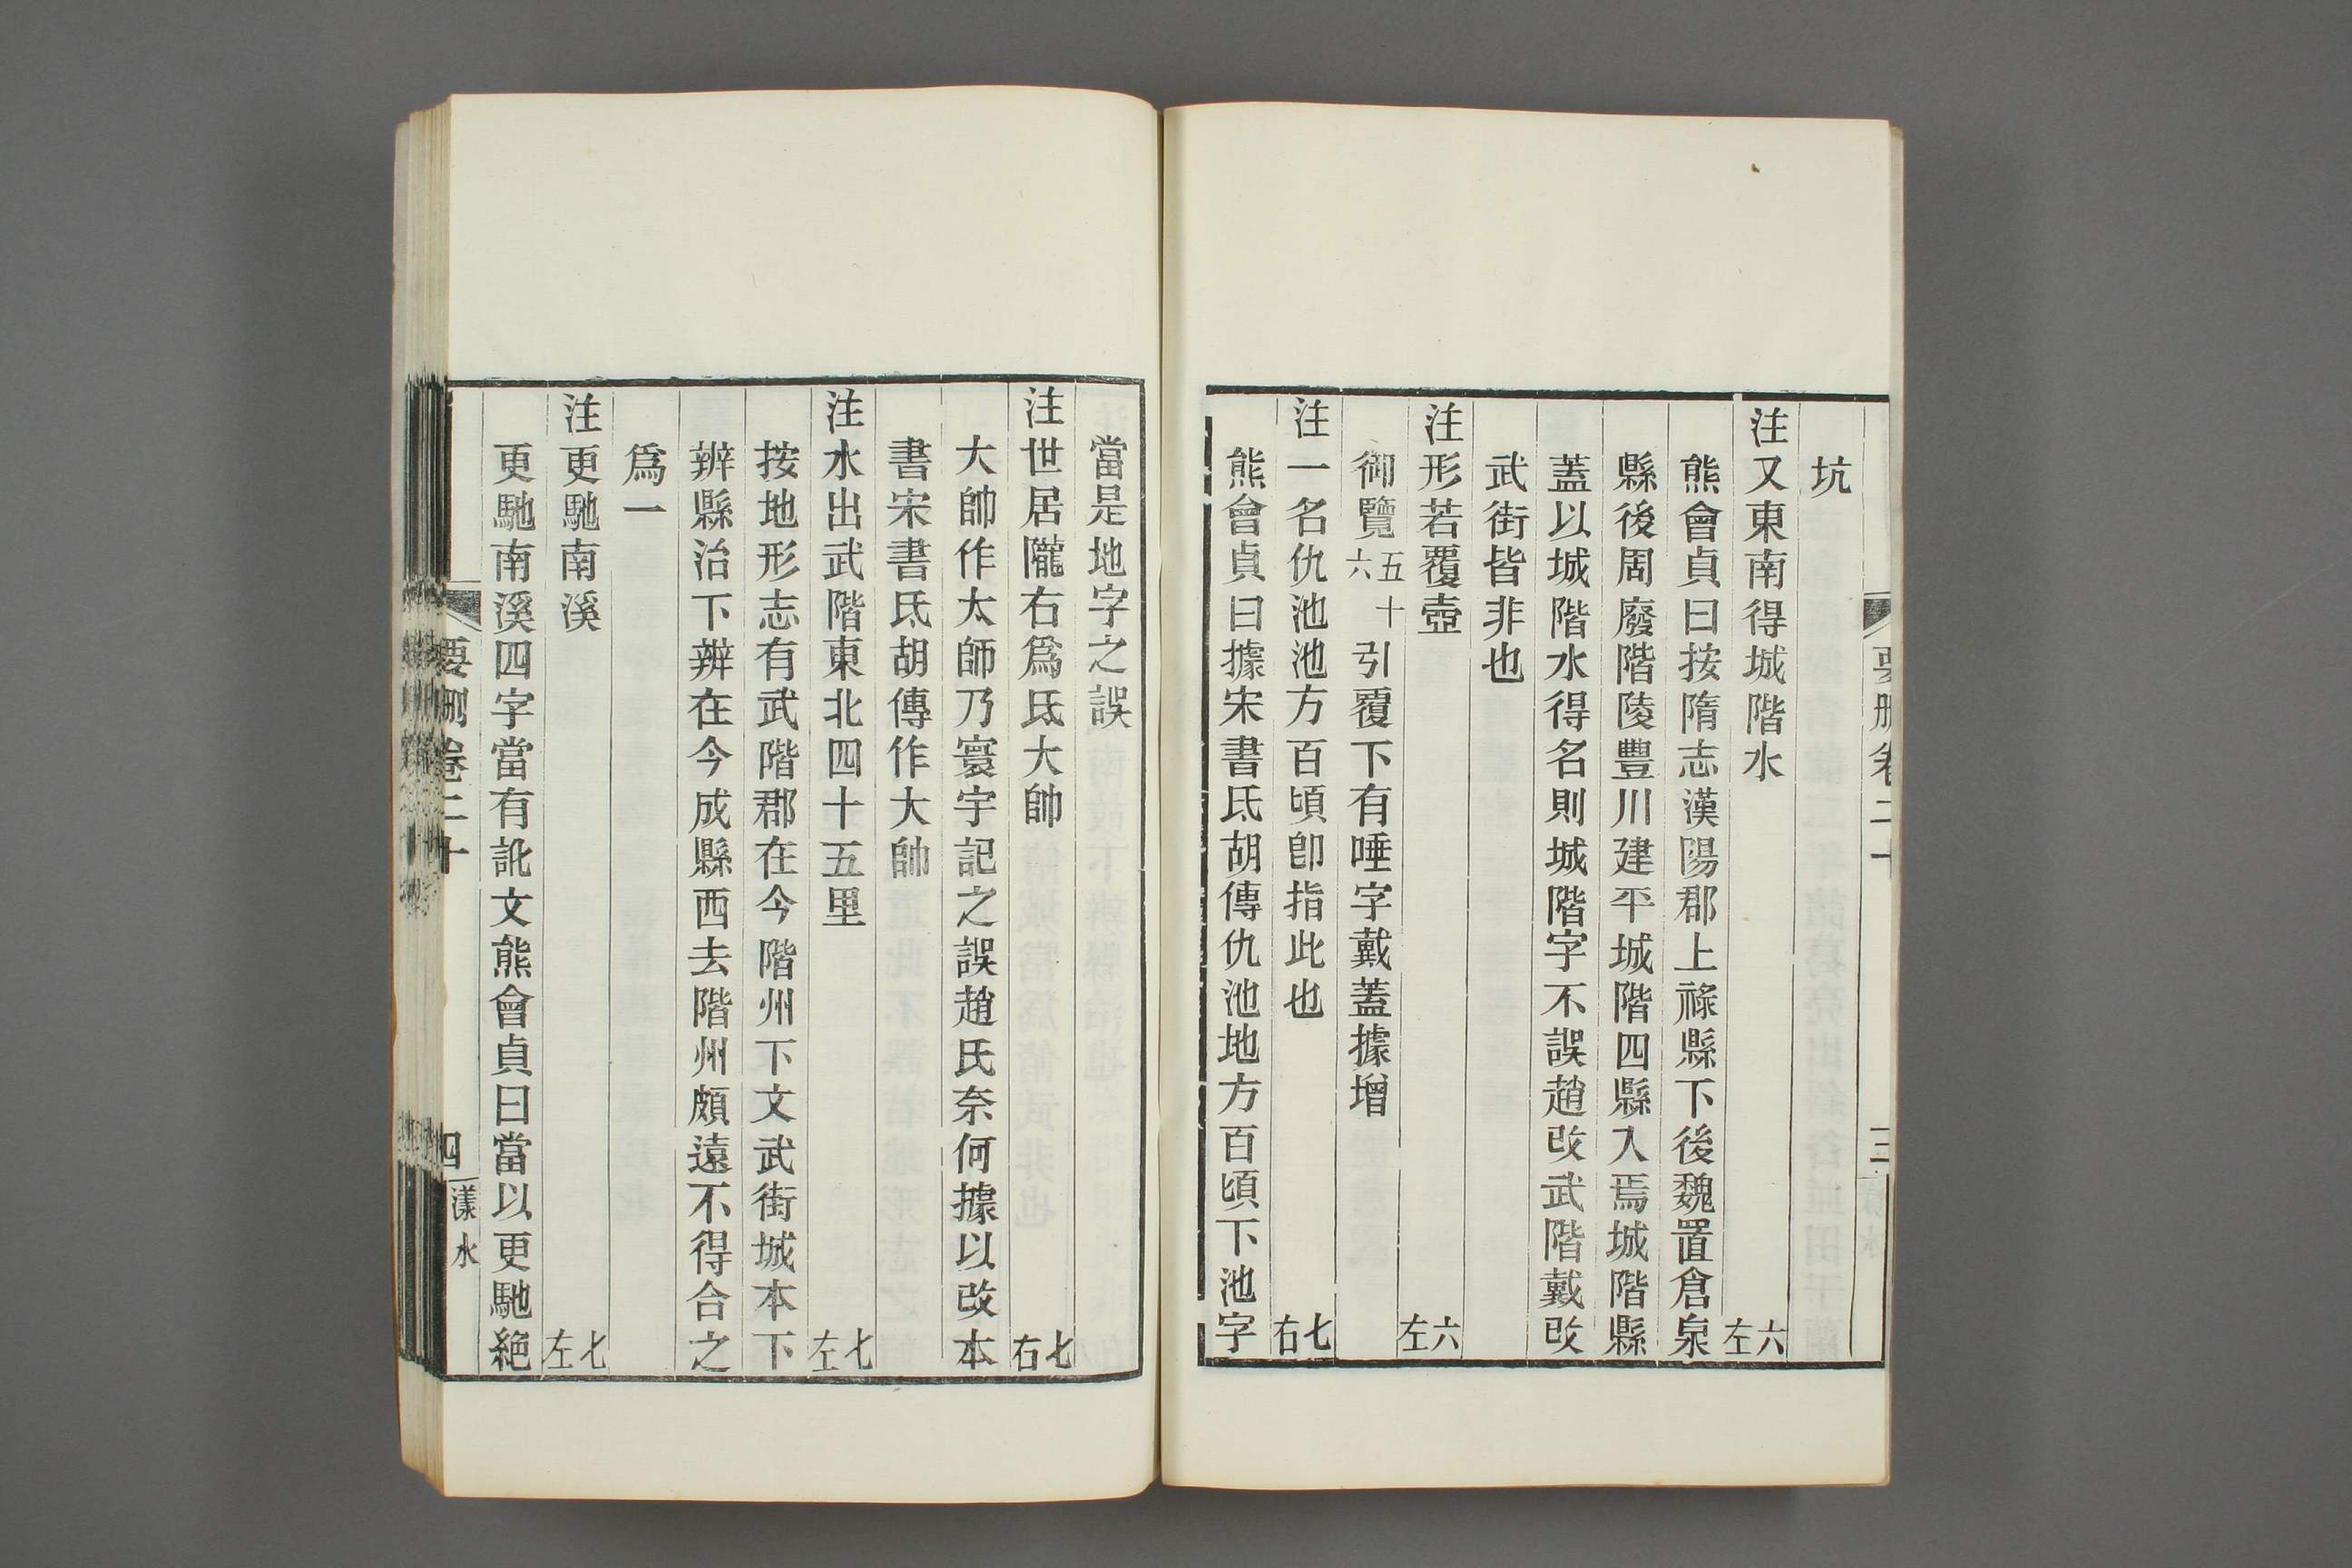 要刪卷二十
三
坑
注又東南得城階水 六左
熊會貞曰按隋志漢陽郡上祿縣下後魏置倉泉
縣後周廢階陵豐川建平城階四縣入焉城階縣
蓋以城階水得名則城階字不誤趙改武階戴改
武街皆非也
注形若覆壺 六左
御覽五十六引覆下有唾字戴蓋據增
注一名仇池池方百頃卽指此也 七右
熊會貞曰據宋書氐胡傳仇池地方百頃下池字
當是地字之誤
注世居隴右爲氐大帥 七右
大帥作太師乃寰宇記之誤趙氏奈何據以改本
書宋書氐胡傳作大帥
注水出武階東北四十五里 七左
按地形志有武階郡在今階州下文武街城本下
辨縣治下辨在今成縣西去階州頗遠不得合之
爲一
注更馳南溪 七左
更馳南溪四字當有訛文熊會貞曰當以更馳絕
要刪卷二十
四
漾水